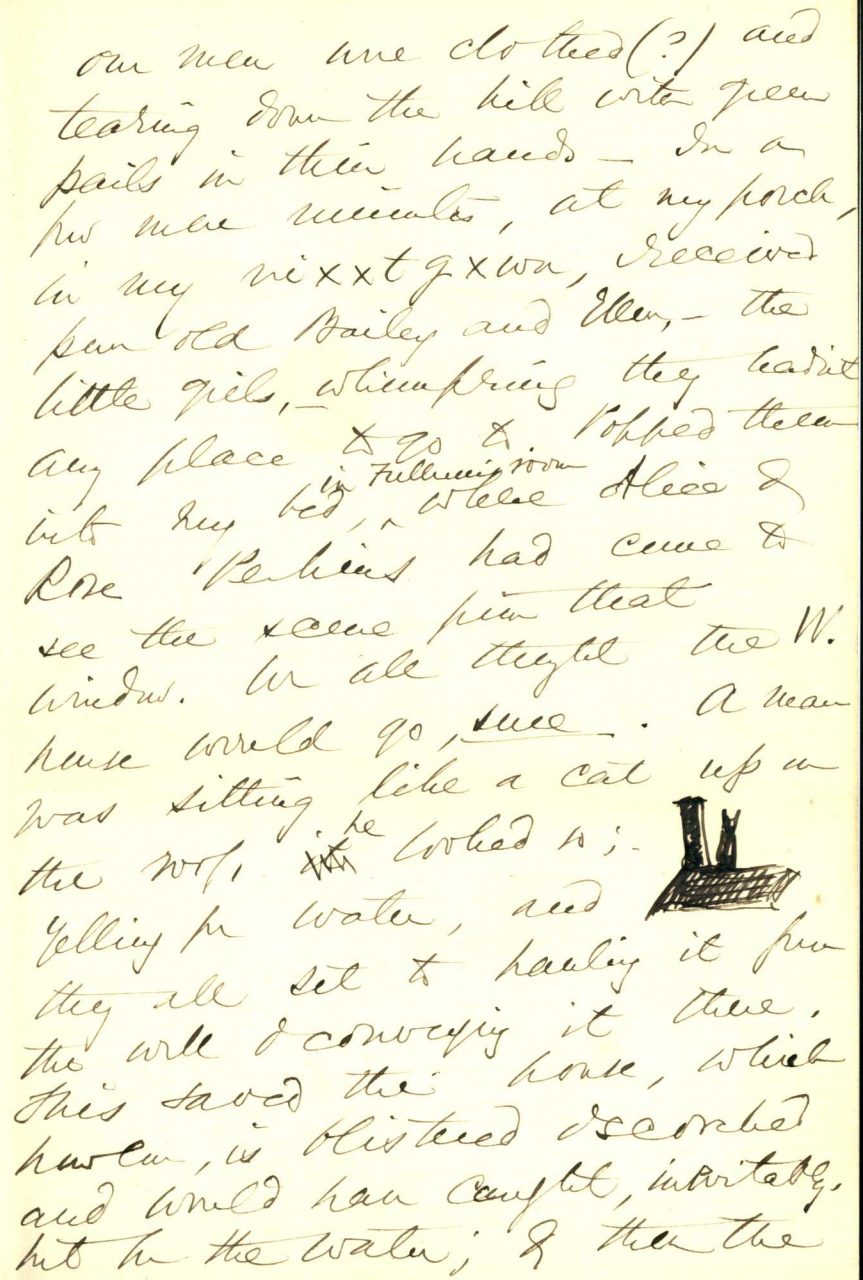 our men were clothed (?) and
tearing down the hill with green
pails in their hands – In a
few more minutes, at my porch,
in my nixxt gxwn, I received
poor old Bailey and Ellen, – the
little girls, – whimpering they hadn't
any place to go to. Popped them
into my bed, in Fullum room where Alice &
Rose Perkins had come to
see the scene from that
window. We all thought the W.
house would go, sure. A man
was sitting like a cat up on
the roof, he looked so; –
Yelling for water, and
they all set to hauling it from
the well & conveying it there.
This saved the house, which
however, is blistered & scorched
and would have caught, inevitably,
but for the water; & then the